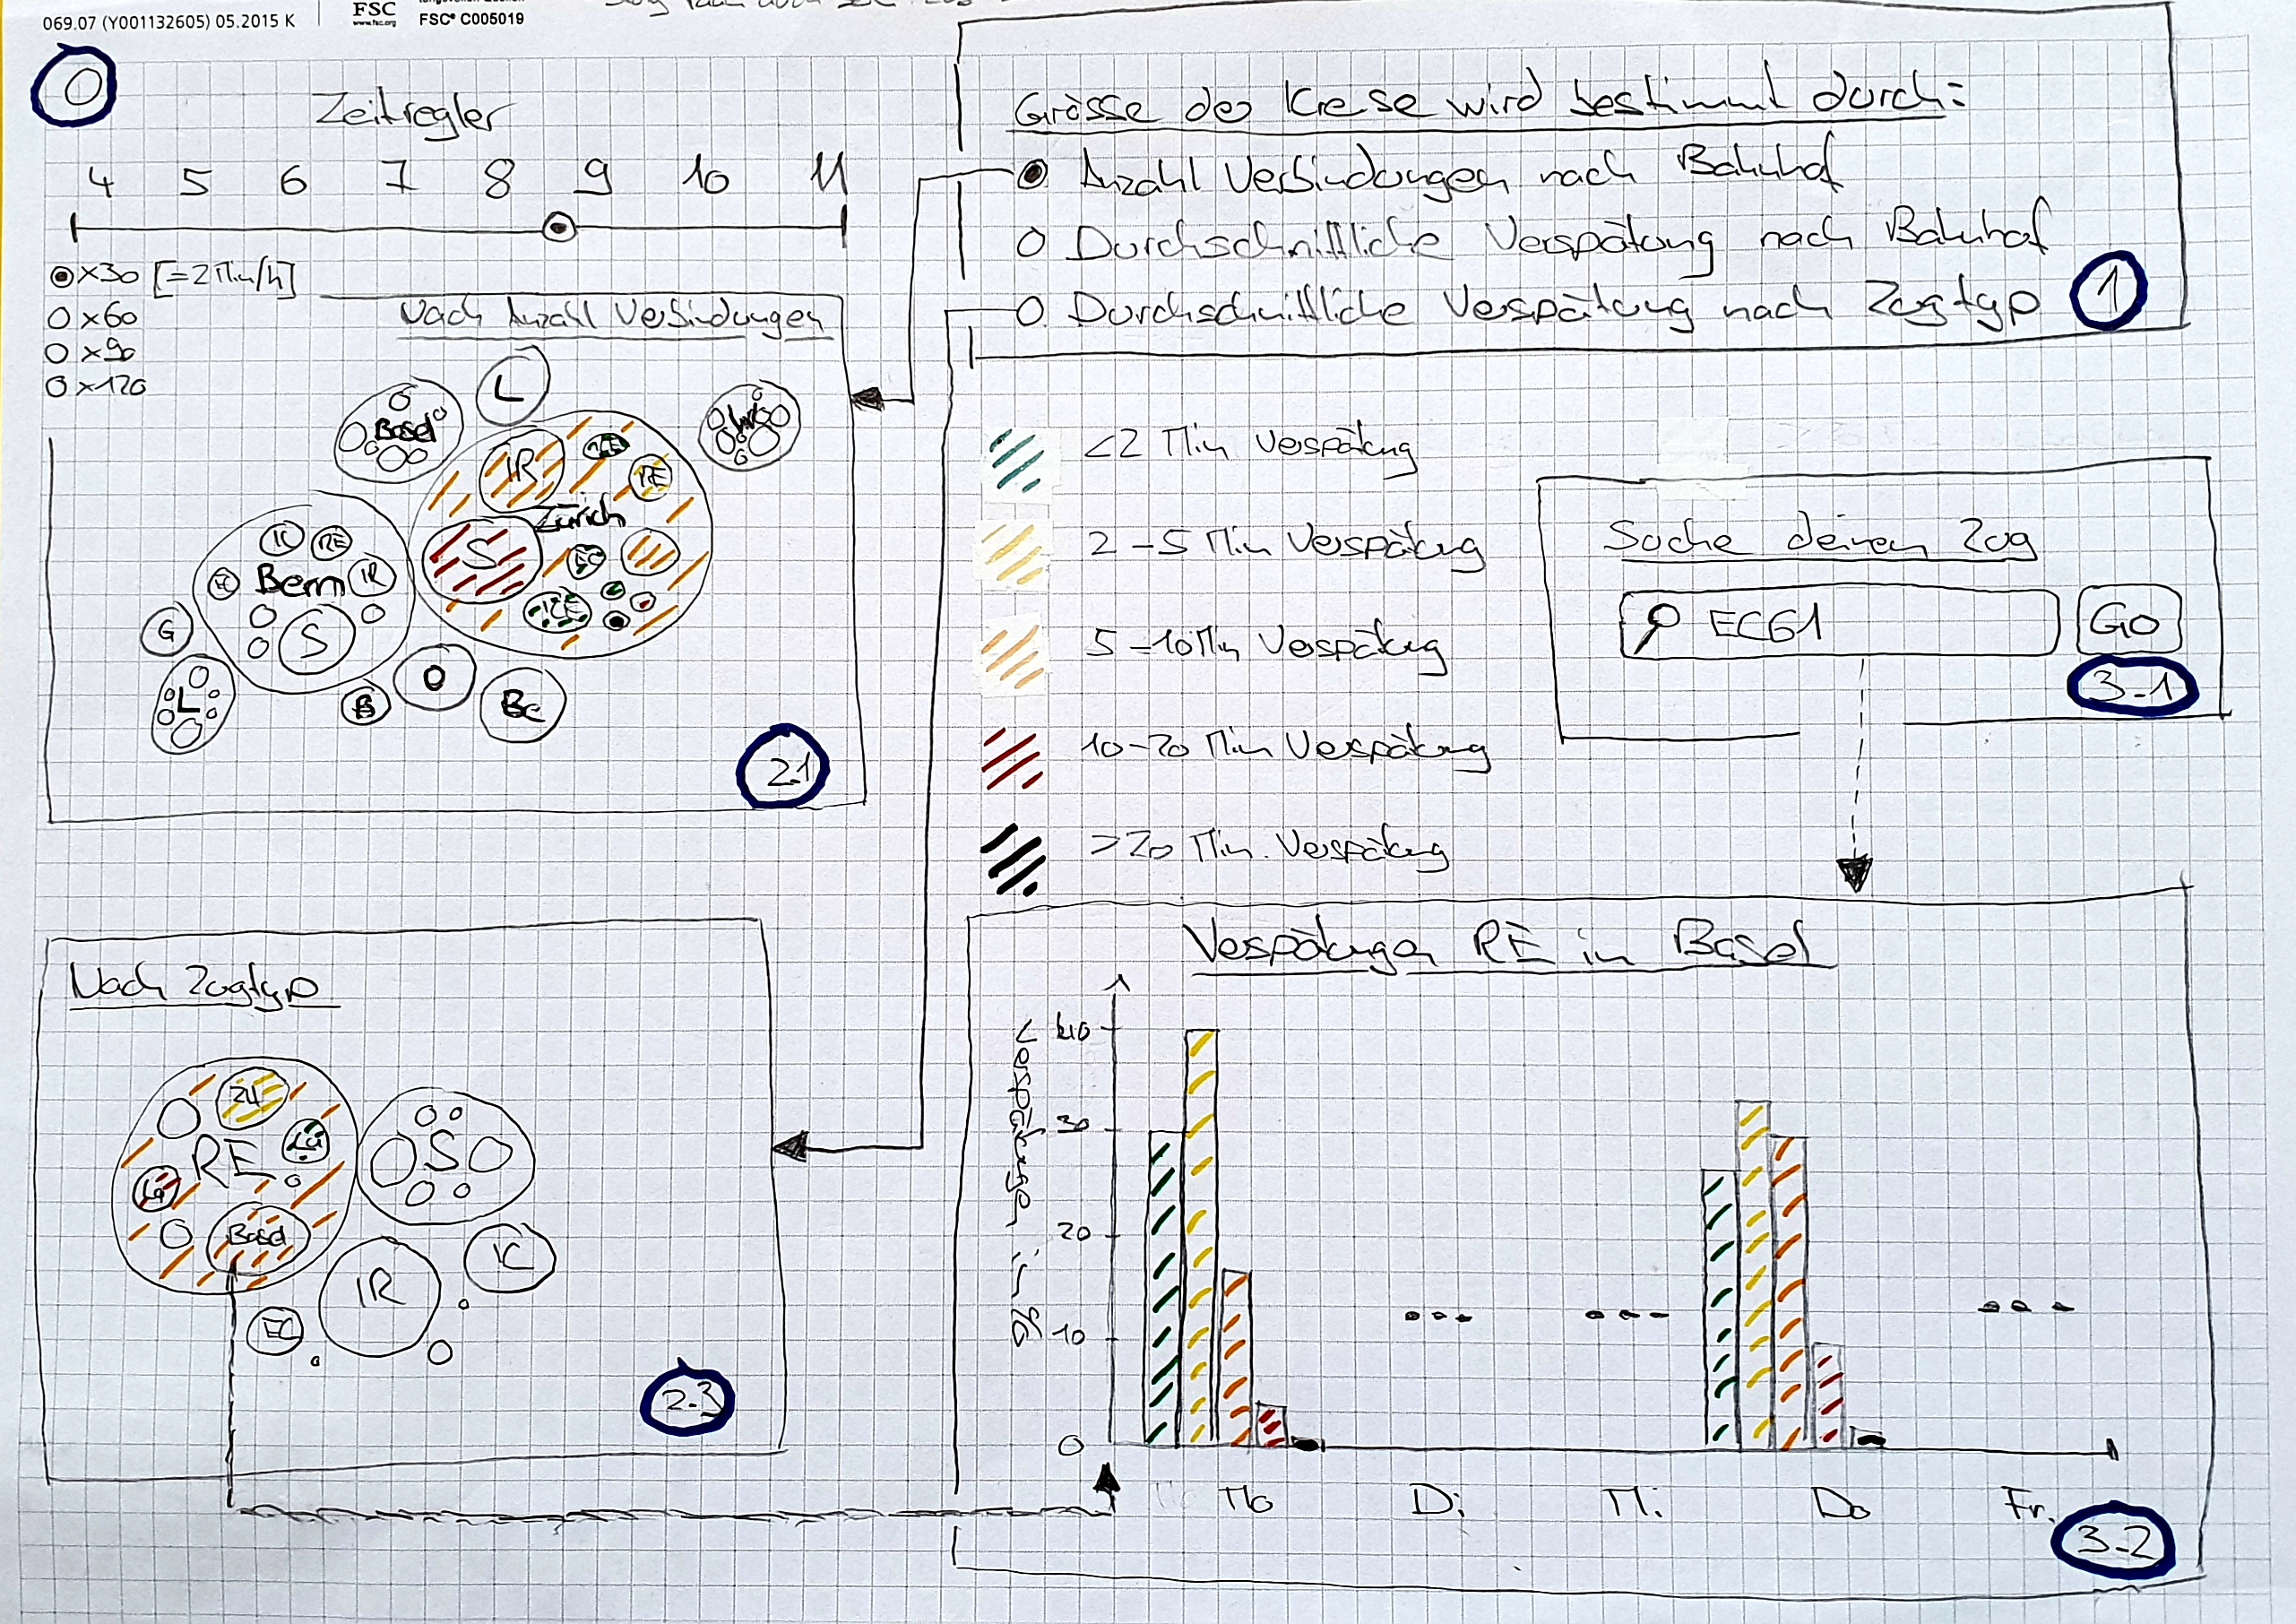 069.07 (Y001132605) 05.2015 K
FSC
www.fsc.org
FSC® C005019
0
Zeitregler
4 5 6 7 8 9 10 11
x30 [=2Min/h]
x60
x90
x120
Grösse der Kreise wird bestimmt durch:
Anzahl Verbindungen nach Bahnhof
Durchschnittliche Verspätung nach Bahnhof
Durchschnittliche Verspätung nach Zugtyp
1
Nach Anzahl Verbindungen
L
Basel
IR
RE
Zürich
S
EC
ICE
IC
RE
Bern
IR
EC
S
G
L
B
O
Be
2.1
<2 Min Verspätung
2-5 Min Verspätung
5-10 Min Verspätung
10-20 Min Verspätung
>20 Min. Verspätung
Suche deinen Zug
EC61
Go
3-1
Nach Zugtyp
ZU
Lu
RE
Basel
S
IC
IR
EC
2.3
Verspätungen RE in Basel
Verspätungen in %
40
30
20
10
0
Mo Di Mi Do Fr.
3-2